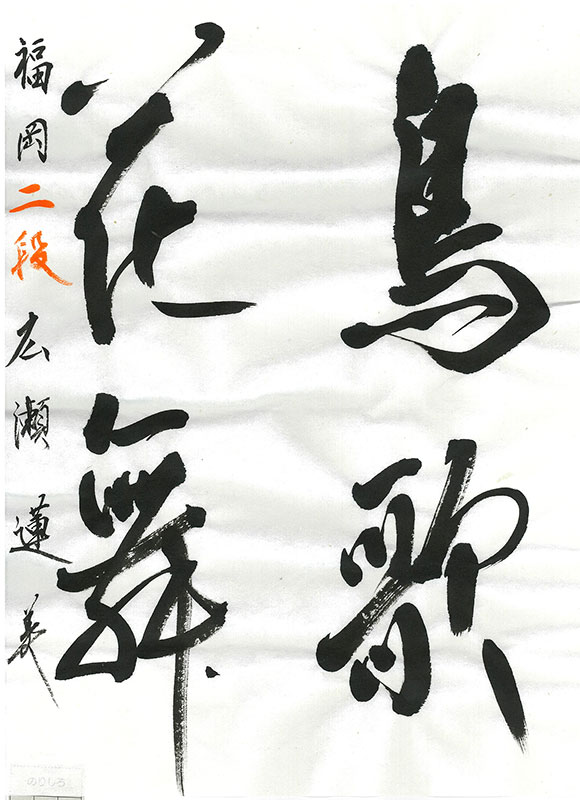 鳥歌
花舞
福岡二段広瀬蓮美
のりしろ